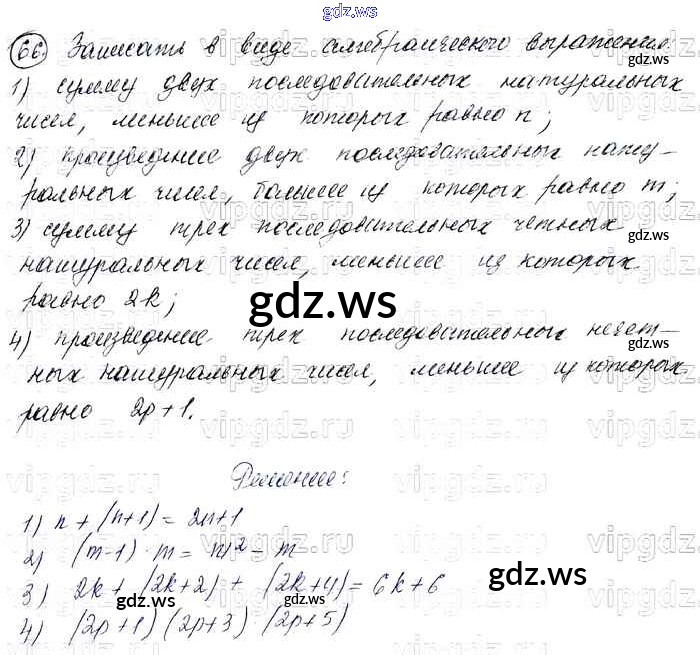 gdz.ws
66. Записать в виде алгебраического выражения:
1) сумму двух последовательных натуральных
чисел, меньшее из которых равно n;
2) произведение двух последовательных нату-
ральных чисел, большее из которых равно m;
3) сумму трех последовательных четных
натуральных чисел, меньшее из которых
равно 2k;
4) произведение трех последовательных нечет-
ных натуральных чисел, меньшее из которых
равно 2p+1.
Решение:
1) n + (n+1) = 2n+1
2) (m-1) · m = m² - m
3) 2k + (2k+2) + (2k+4) = 6k+6
4) (2p+1)(2p+3)·(2p+5)
gdz.ws
gdz.ws
gdz.ws
gdz.ws
gdz.ws
vipgdz.ru